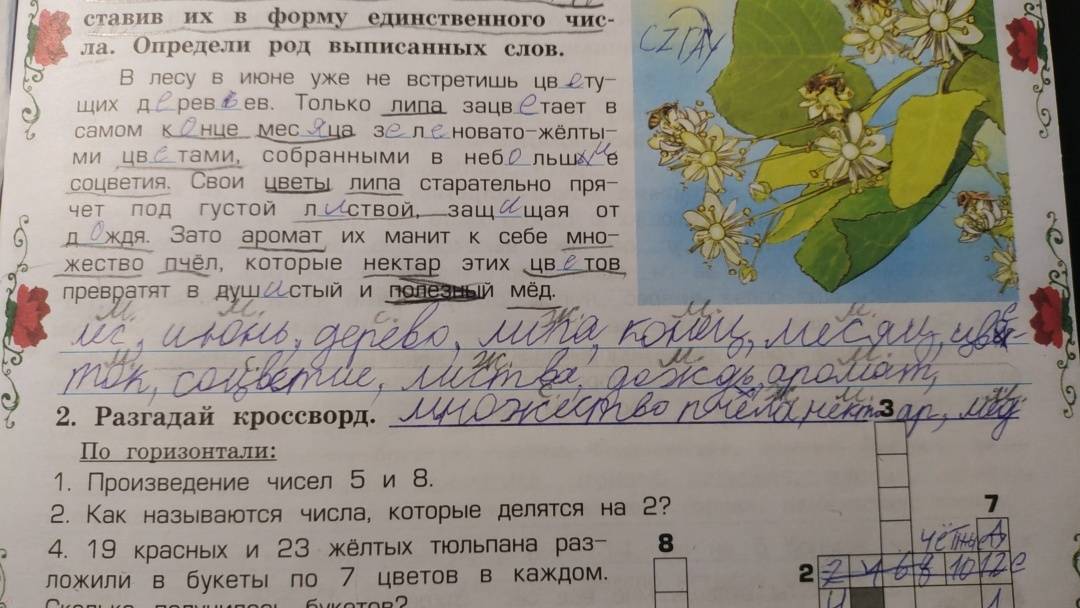 ставив их в форму единственного чис-
ла. Определи род выписанных слов.
CZПАУ
В лесу в июне уже не встретишь цветy-
щих деревьев. Только липа зацветает в
самом конце месяца зеленовато-жёлты-
ми цветами, собранными в небольшие
соцветия. Свои цветы липа старательно пря-
чет под густой листвой, защищая от
дождя. Зато аромат их манит к себе мно-
жество пчёл, которые нектар этих цветов
превратят в душистый и полезный мёд.
м. м. с. ж. м. м.
лес, июнь, дерево, липа, конец, месяц, цве-
м. с. ж. м. м.
ток, соцветие, листва, дождь, аромат,
2. Разгадай кроссворд. множество пчела нектар, мёд
3
По горизонтали:
1. Произведение чисел 5 и 8.
2. Как называются числа, которые делятся на 2?
7
4. 19 красных и 23 жёлтых тюльпана раз-
8
чётные
ложили в букеты по 7 цветов в каждом.
2 2 4 6 8 10 12
Сколько получилось букетов?